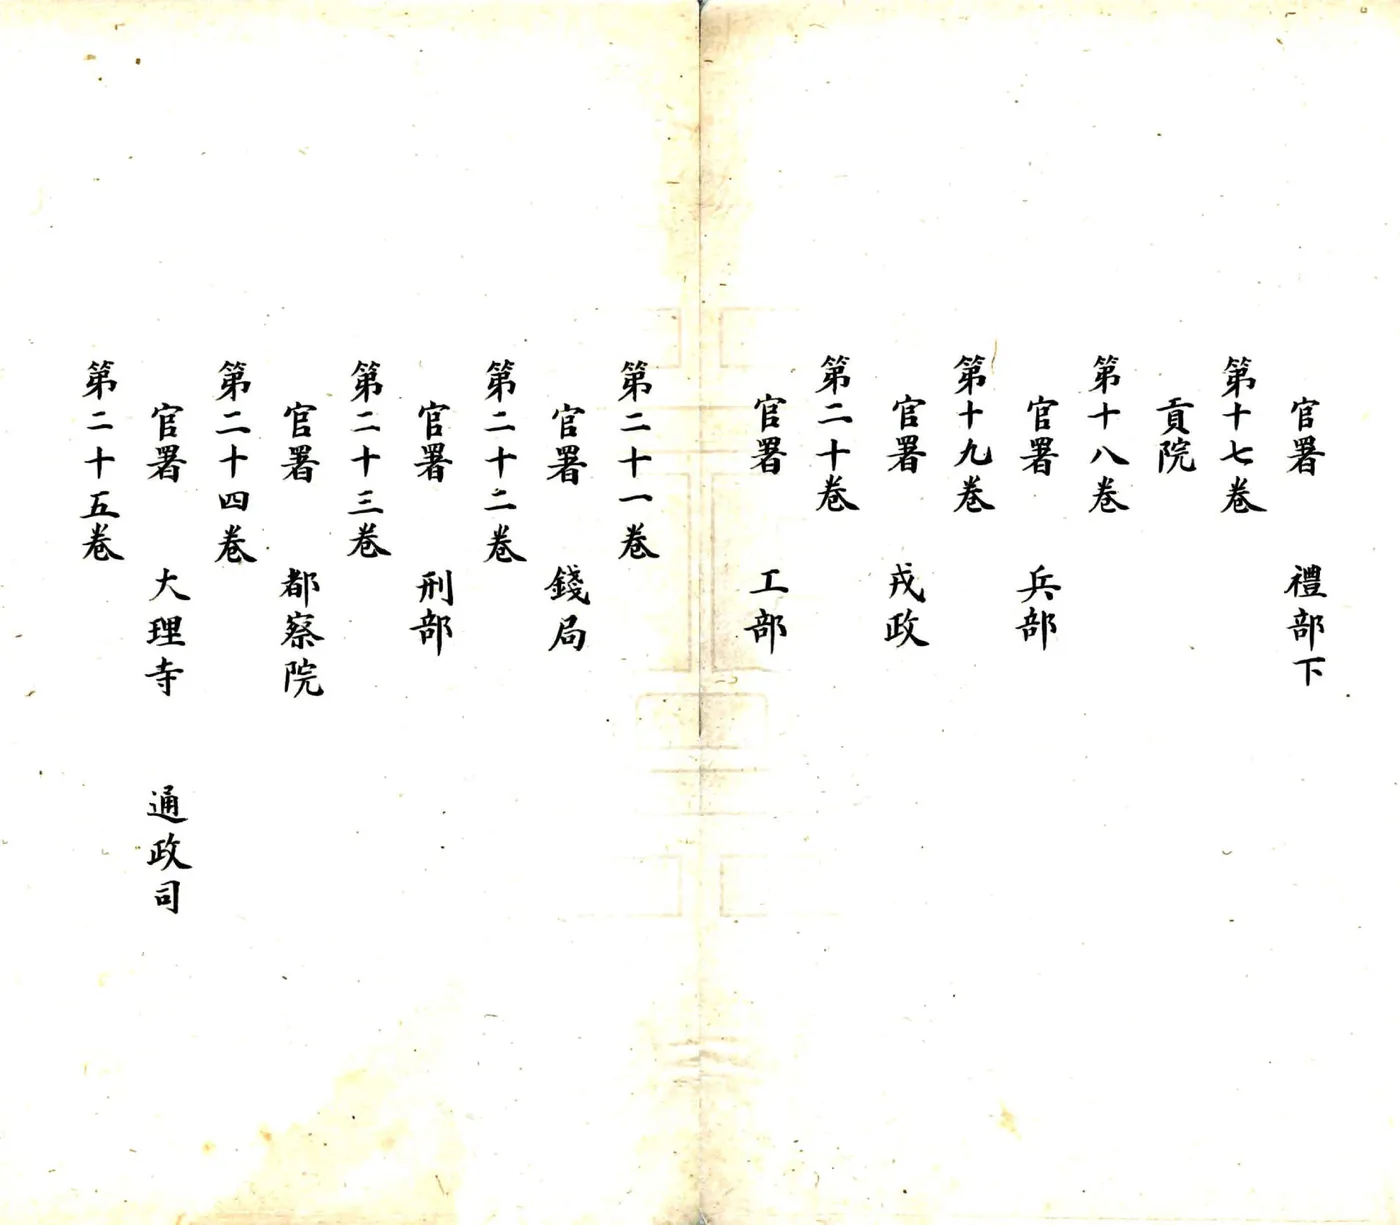 官署 禮部下
第十七卷
貢院
第十八卷
官署 兵部
第十九卷
官署 戎政
第二十卷
官署 工部
第二十一卷
官署 錢局
第二十二卷
官署 刑部
第二十三卷
官署 都察院
第二十四卷
官署 大理寺 通政司
第二十五卷